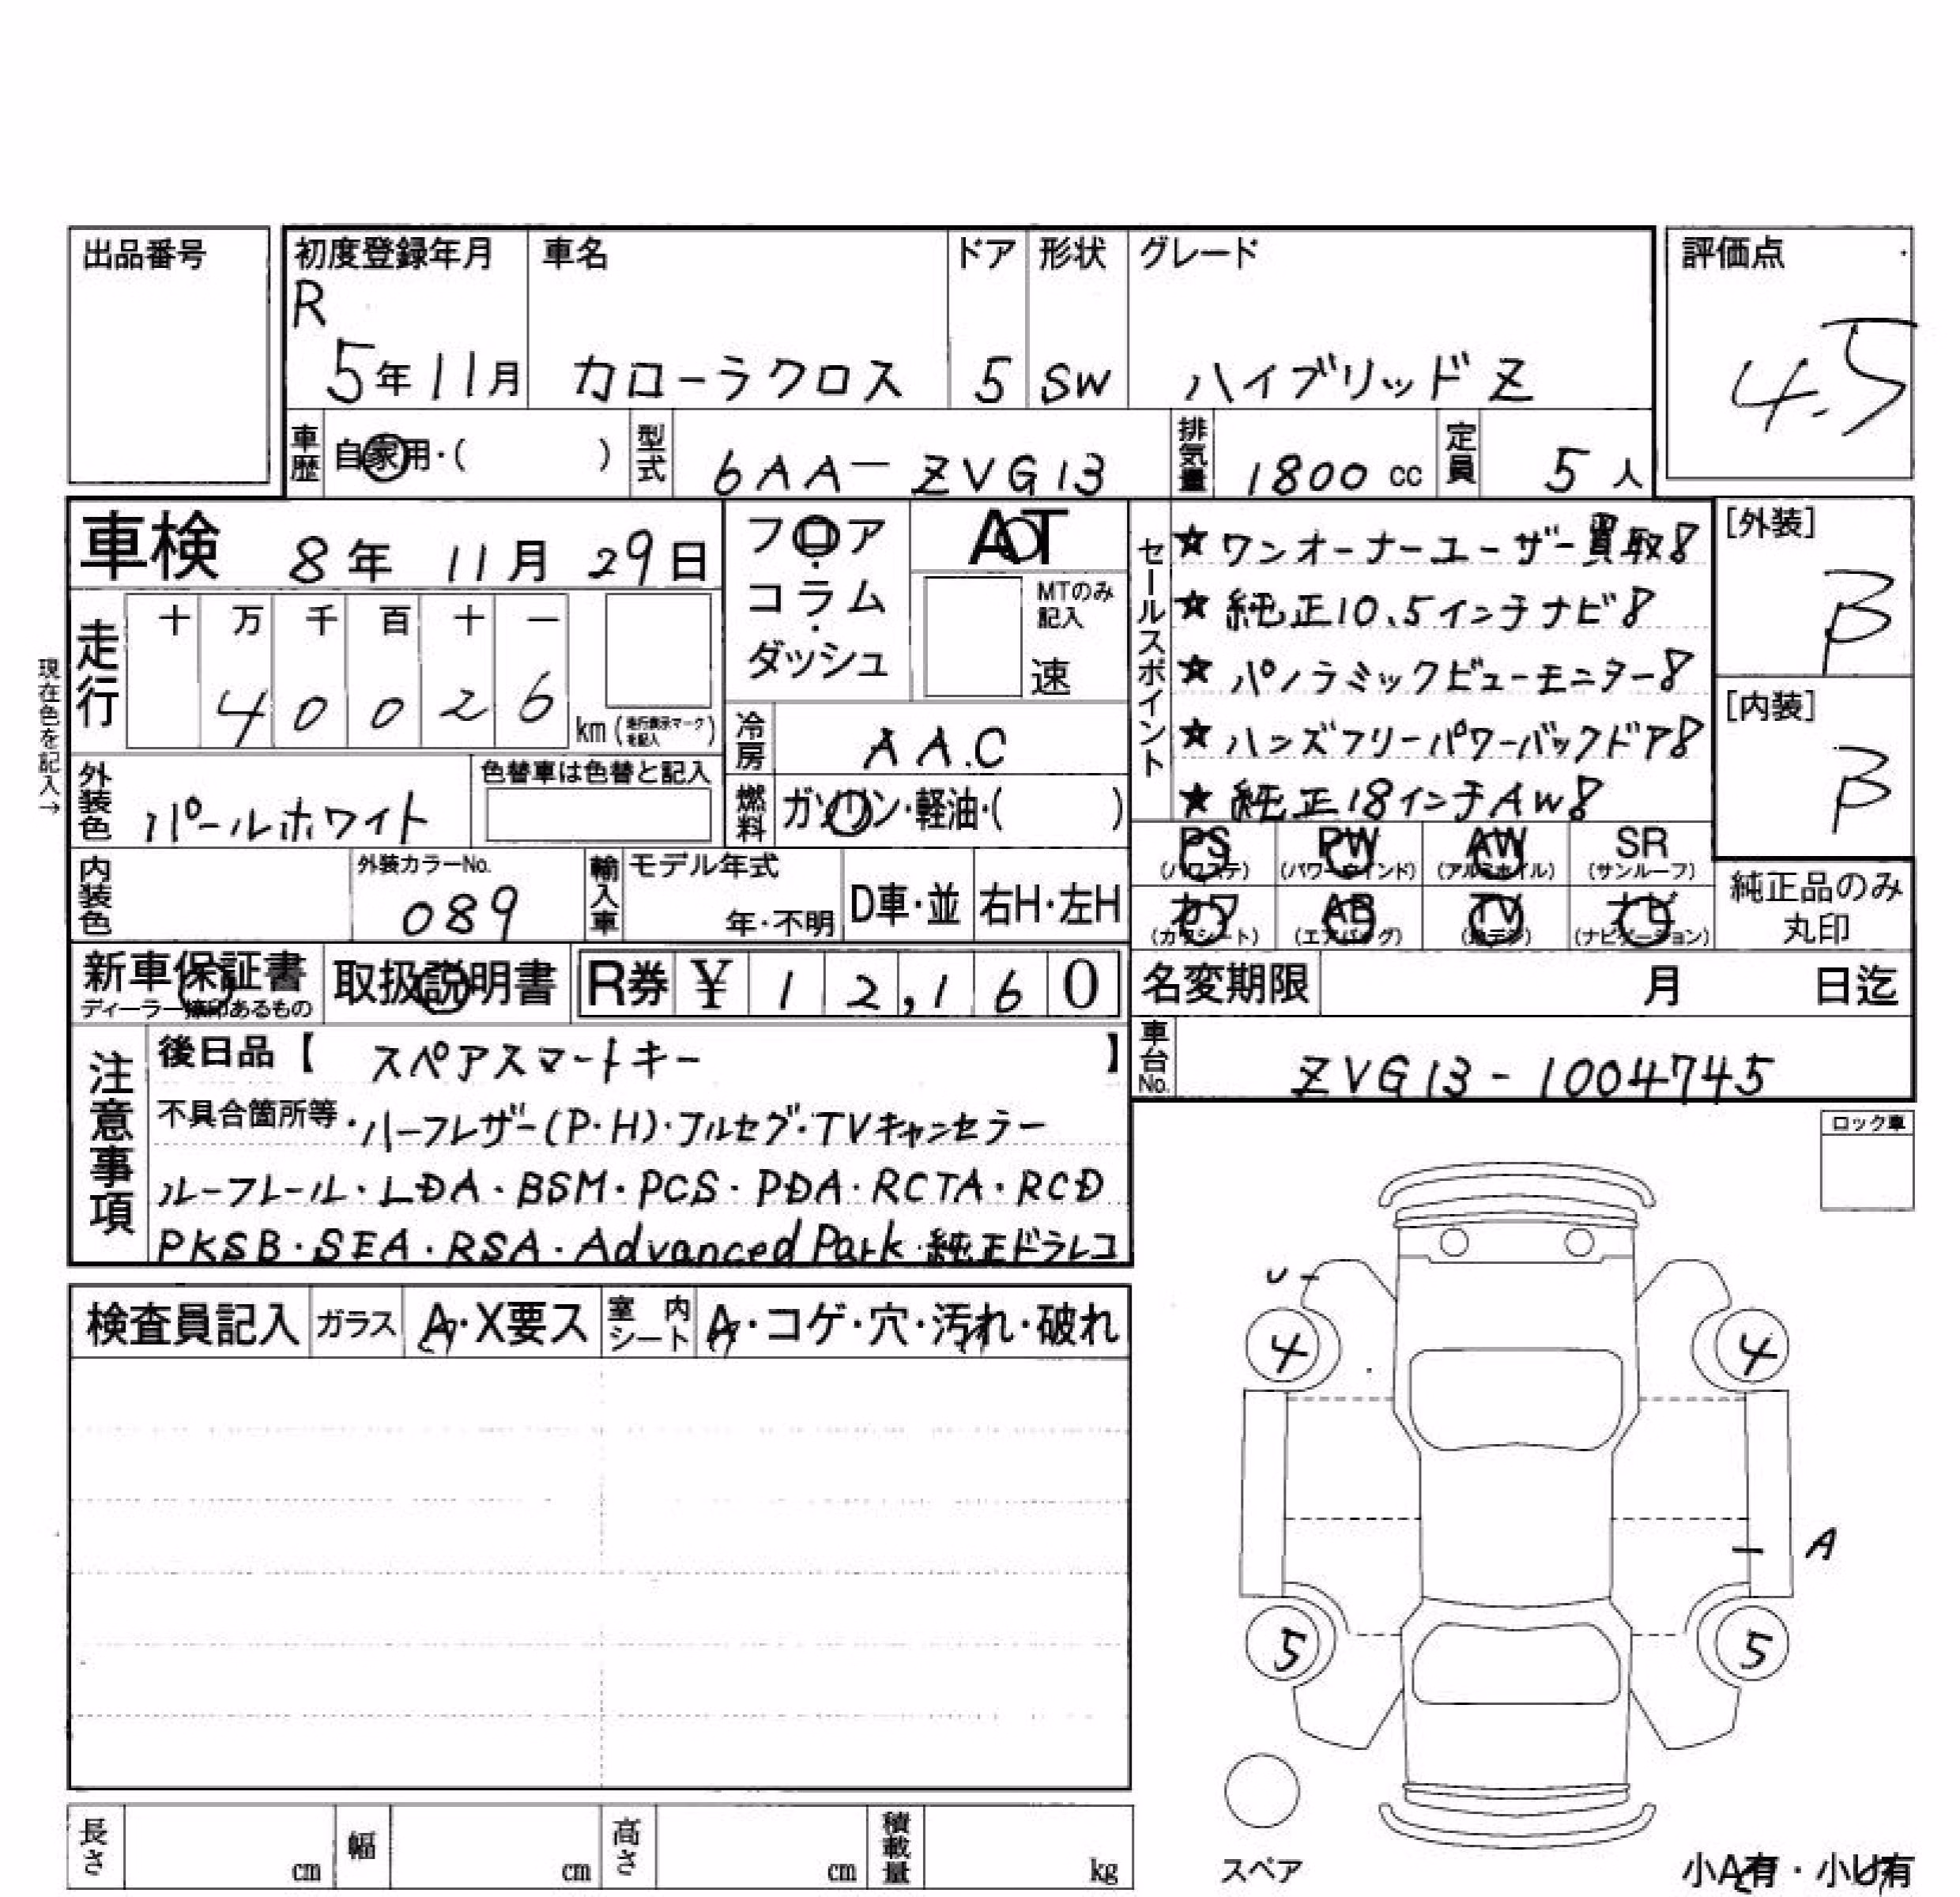 出品番号
初度登録年月 車名 ドア 形状 グレード 評価点
R
5年11月 カローラクロス 5 SW ハイブリッドZ 4.5
車歴 自家用・( ) 型式 6AA-ZVG13 排気量 1800 cc 定員 5人
車検 8年 11月 29日
フロア・コラム・ダッシュ
AT
MTのみ記入
速
セールスポイント
★ワンオーナーユーザー買取!!
★純正10.5インチナビ!!
★パノラミックビューモニター!!
★ハンズフリーパワーバックドア!!
★純正18インチAW!!
[外装]
B
[内装]
B
現在色を記入→
走行 十 万 千 百 十 一
4 0 0 2 6 km (走行表示マークを記入)
冷房 AAC
外装色 パールホワイト 色替車は色替と記入
燃料 ガソリン・軽油・( )
PS (パワステ) PW (パワーウインド) AW (アルミホイル) SR (サンルーフ)
カワ (カワシート) AB (エアバッグ) TV (地デジ) ナビ (ナビゲーション)
純正品のみ丸印
内装色 外装カラーNo. 089 輸入車 モデル年式 年・不明 D車・並 右H・左H
新車保証書 ディーラー捺印あるもの 取扱説明書 R券 ¥ 12,160
名変期限 月 日迄
車台No. ZVG13-1004745
注意事項
後日品【 スペアスマートキー 】
不具合箇所等・ハーフレザー(P・H)・フルセグ・TVキャンセラー
ルーフレール・LDA・BSM・PCS・PDA・RCTA・RCD
PKSB・SEA・RSA・Advanced Park・純正ドラレコ
ロック車
検査員記入 ガラス A・X要ス 室内シート A・コゲ・穴・汚れ・破れ
4 4
A
5 5
スペア
長さ cm 幅 cm 高さ cm 積載量 kg
小A有・小U有